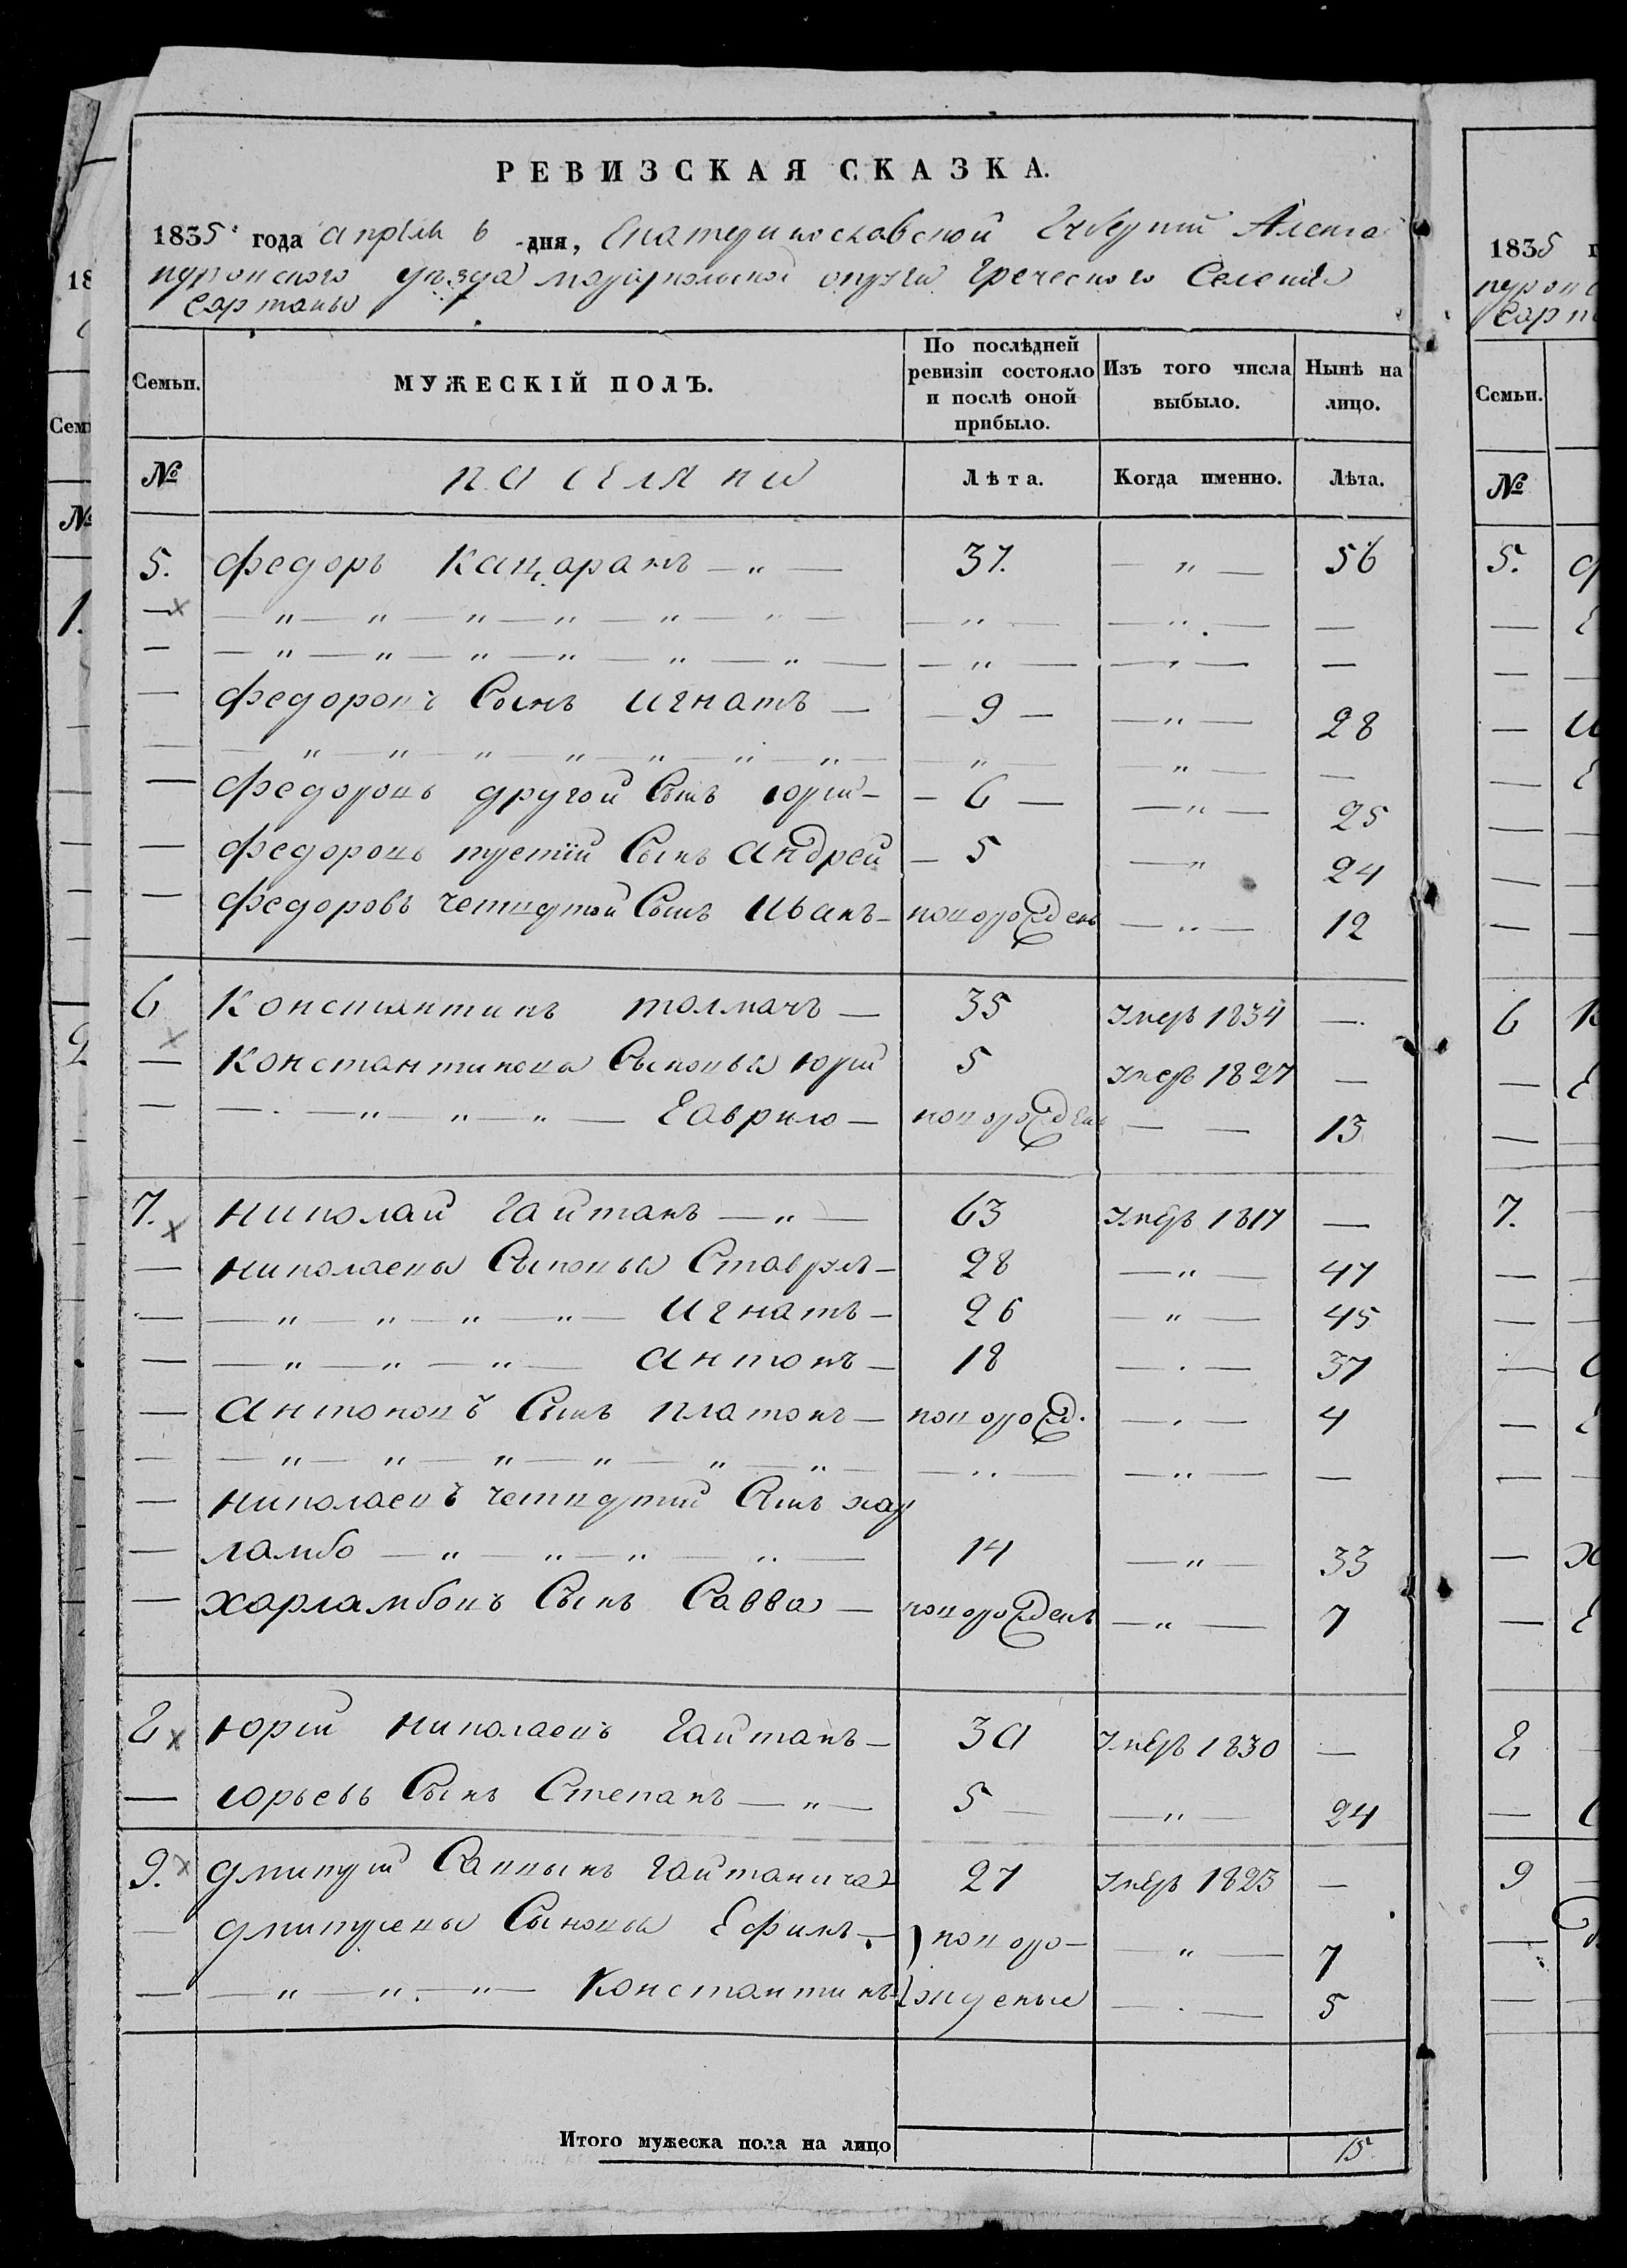 РЕВИЗСКАЯ СКАЗКА.
1835 года апреля 6 дня, Екатеринославской Губернии Алекса
ндровского уезда мариупольской округи Греческого Селения
Сартаны
Семьи.
МУЖЕСКІЙ ПОЛЪ.
По послѣдней ревизіи состояло и послѣ оной прибыло.
Изъ того числа выбыло.
Нынѣ на лицо.
№
поселяни
Лѣта.
Когда именно.
Лѣта.
5. федоръ — „ — 37. — „ — 56
федоровъ Сынъ игнатъ — 9 — „ — 28
федоровъ другой Сынъ юрий — 6 — „ — 25
федоровъ третий Сынъ андрей — 5 — „ 24
федоровъ четвертой Сынъ иванъ — новорожденъ — „ — 12
6 Константинъ толмачъ — 35 Умеръ 1834 —
Константиновы Сыновья юрий 5 Умеръ 1827 —
— „ — „ — „ — Гаврило — новорожден — — 13
7. николай Гайтанъ — „ — 63 Умеръ 1817 —
николаевы Сыновья 28 — „ — 47
— „ — „ — „ — „ — игнатъ — 26 — „ — 45
— „ — „ — „ — антонъ — 18 — „ — 37
антоновъ Сынъ платонъ — новорожд. — „ — 4
николаевъ четвертий Сынъ хар
ламбо — „ — „ — „ — „ — 14 — „ — 33
харламбовъ Сынъ Савва — новорожденъ — „ — 7
8 юрий николаевъ Гайтанъ — 30 Умеръ 1830 —
юрьевъ Сынъ Степанъ — „ — 5 — „ — 24
9. дмитрий Саввынъ 27 Умеръ 1823 —
дмитриевы Сыновья Ефимъ — новоро- — „ — 7
— „ — „ — „ — Константинъ жденые — „ — 5
Итого мужеска пола на лицо 15.
1835
Семьи.
№
5.
6
7.
8
9